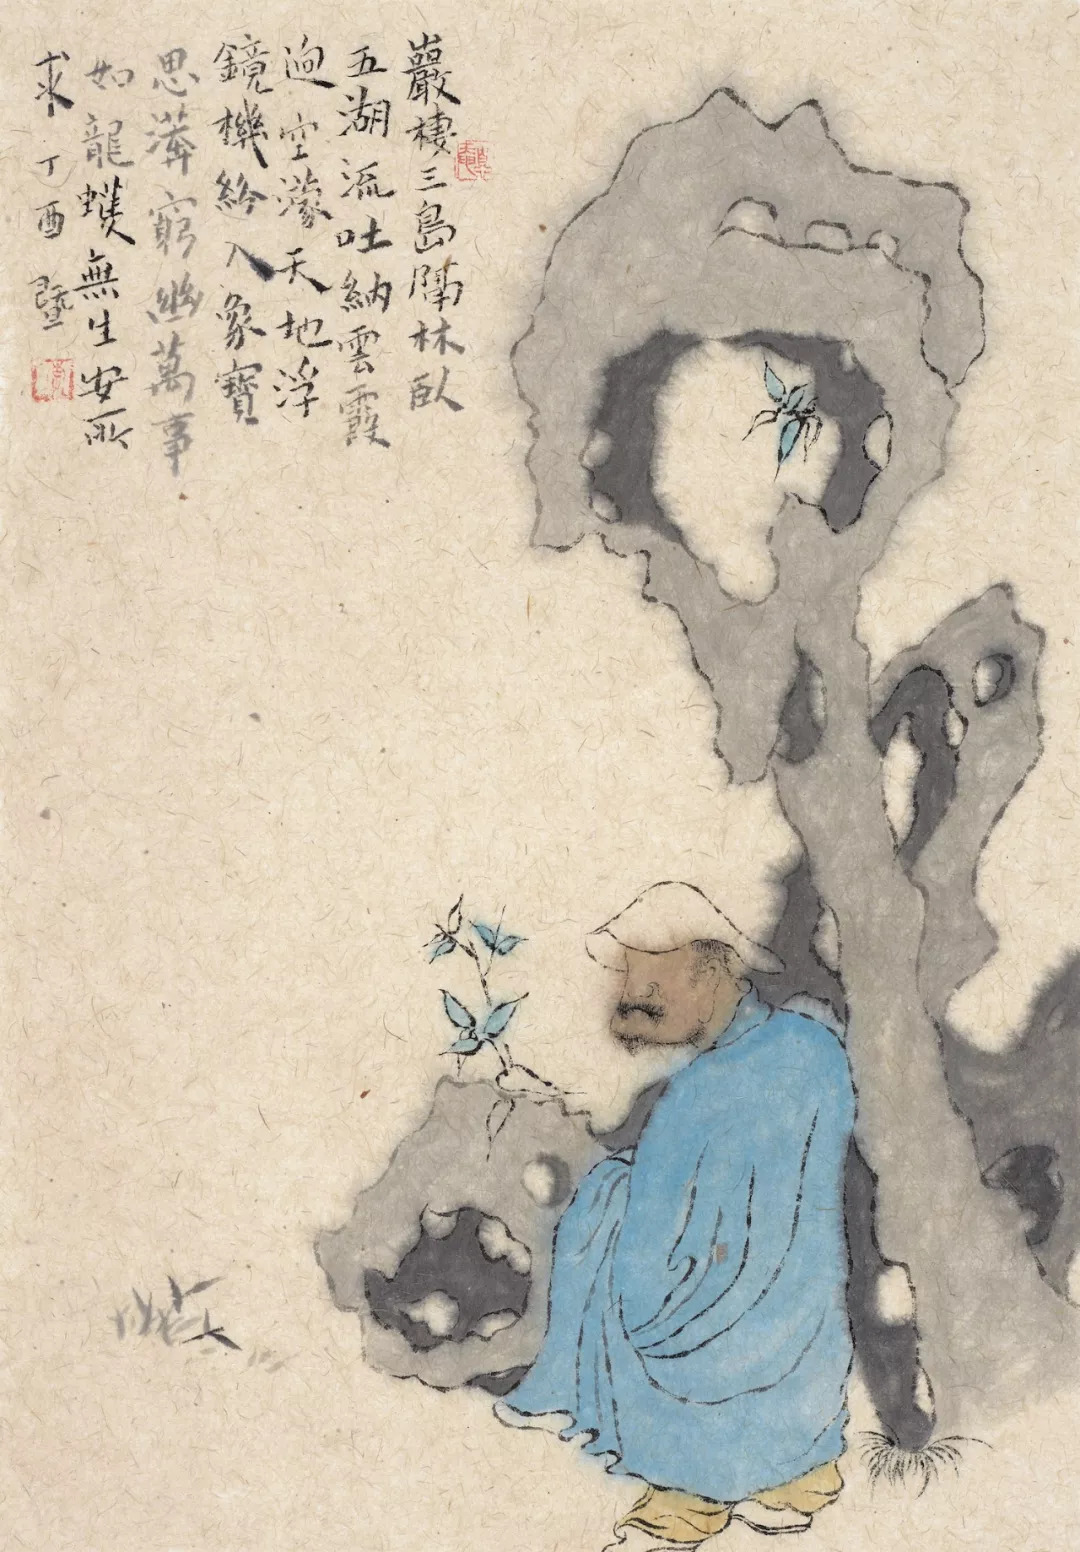 巖棲三島隔林臥
五湖流吐納雲霞
逈空濛天地浮
鏡機紛入象寶
思溝窮幽萬事
如龍蠖無生安所
求 丁酉 暨